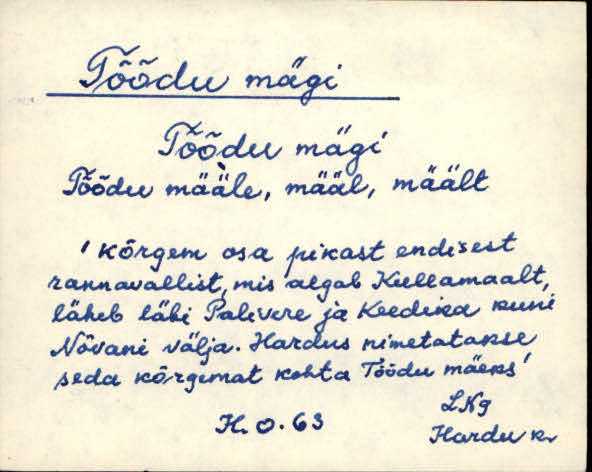 Tõõdu mägi
Tõõdu mägi
Tõõdu mä̀äle, määl, mäält
' kõrgem osa pikast endisest
rannavallist, mis algab Kullamaalt,
läheb läbi Palivere ja Keedika kuni
Nõvani välja. Hardus nimetatakse
seda kõrgemat kohta Tõõdu mäeks'
H. O. 63
LNg
Hardu k.